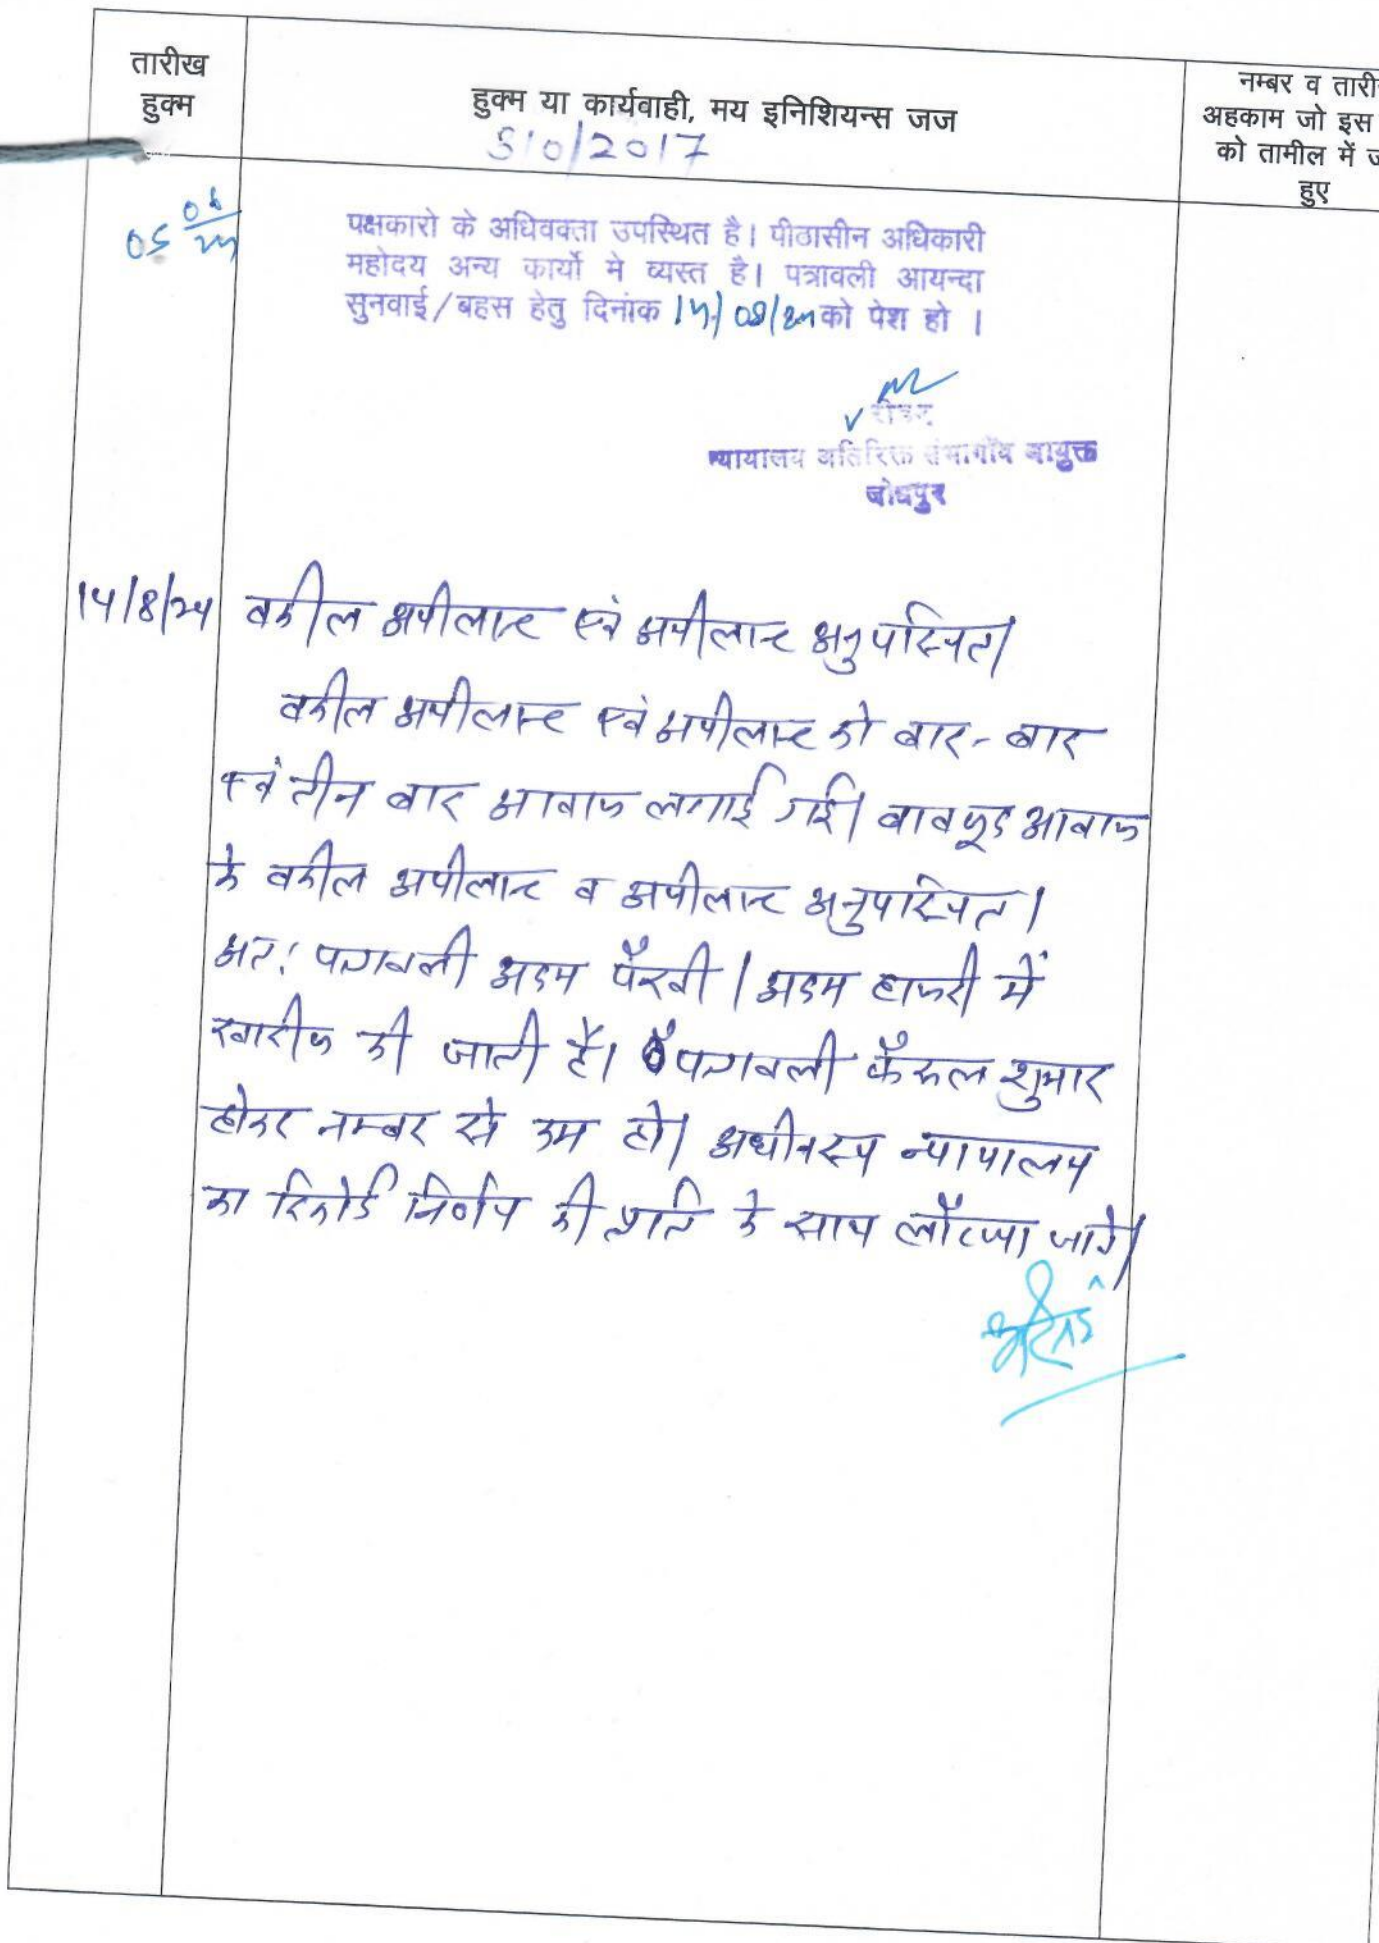 तारीख
हुक्म
हुक्म या कार्यवाही, मय इनिशियन्स जज
510/2017
नम्बर व तारी
अहकाम जो इस
को तामील में ज
हुए
05 06/24
पक्षकारो के अधिवक्ता उपस्थित है। पीठासीन अधिकारी
महोदय अन्य कार्यो मे व्यस्त है। पत्रावली आयन्दा
सुनवाई/बहस हेतु दिनांक 14/08/24 को पेश हो ।
रीडर
न्यायालय अतिरिक्त संभागीय आयुक्त
जोधपुर
14/8/24 वकील अपीलान्ट एवं अपीलान्ट अनुपस्थित।
वकील अपीलान्ट एवं अपीलान्ट को बार-बार
एवं तीन बार आवाज लगाई गई। बावजूद आवाज
के वकील अपीलान्ट व अपीलान्ट अनुपस्थित।
अतः पत्रावली अदम पैरवी / अदम हाजरी में
खारीज की जाती है। पत्रावली फैसल शुमार
होकर नम्बर से कम हो। अधीनस्थ न्यायालय
का रिकोर्ड निर्णय की प्रति के साथ लौटाया जावे।